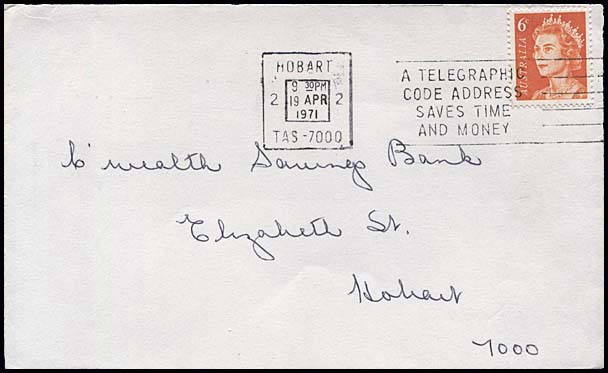 6c
AUSTRALIA
HOBART
9 30PM
2 19 APR 2
1971
TAS-7000
A TELEGRAPHIC
CODE ADDRESS
SAVES TIME
AND MONEY
C'wealth Savings Bank
Elizabeth St.
Hobart
7000